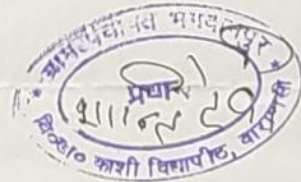 * ग्राम पंचायत भगवानपुर *
प्रधान
वि०ख० काशी विद्यापीठ, वाराणसी